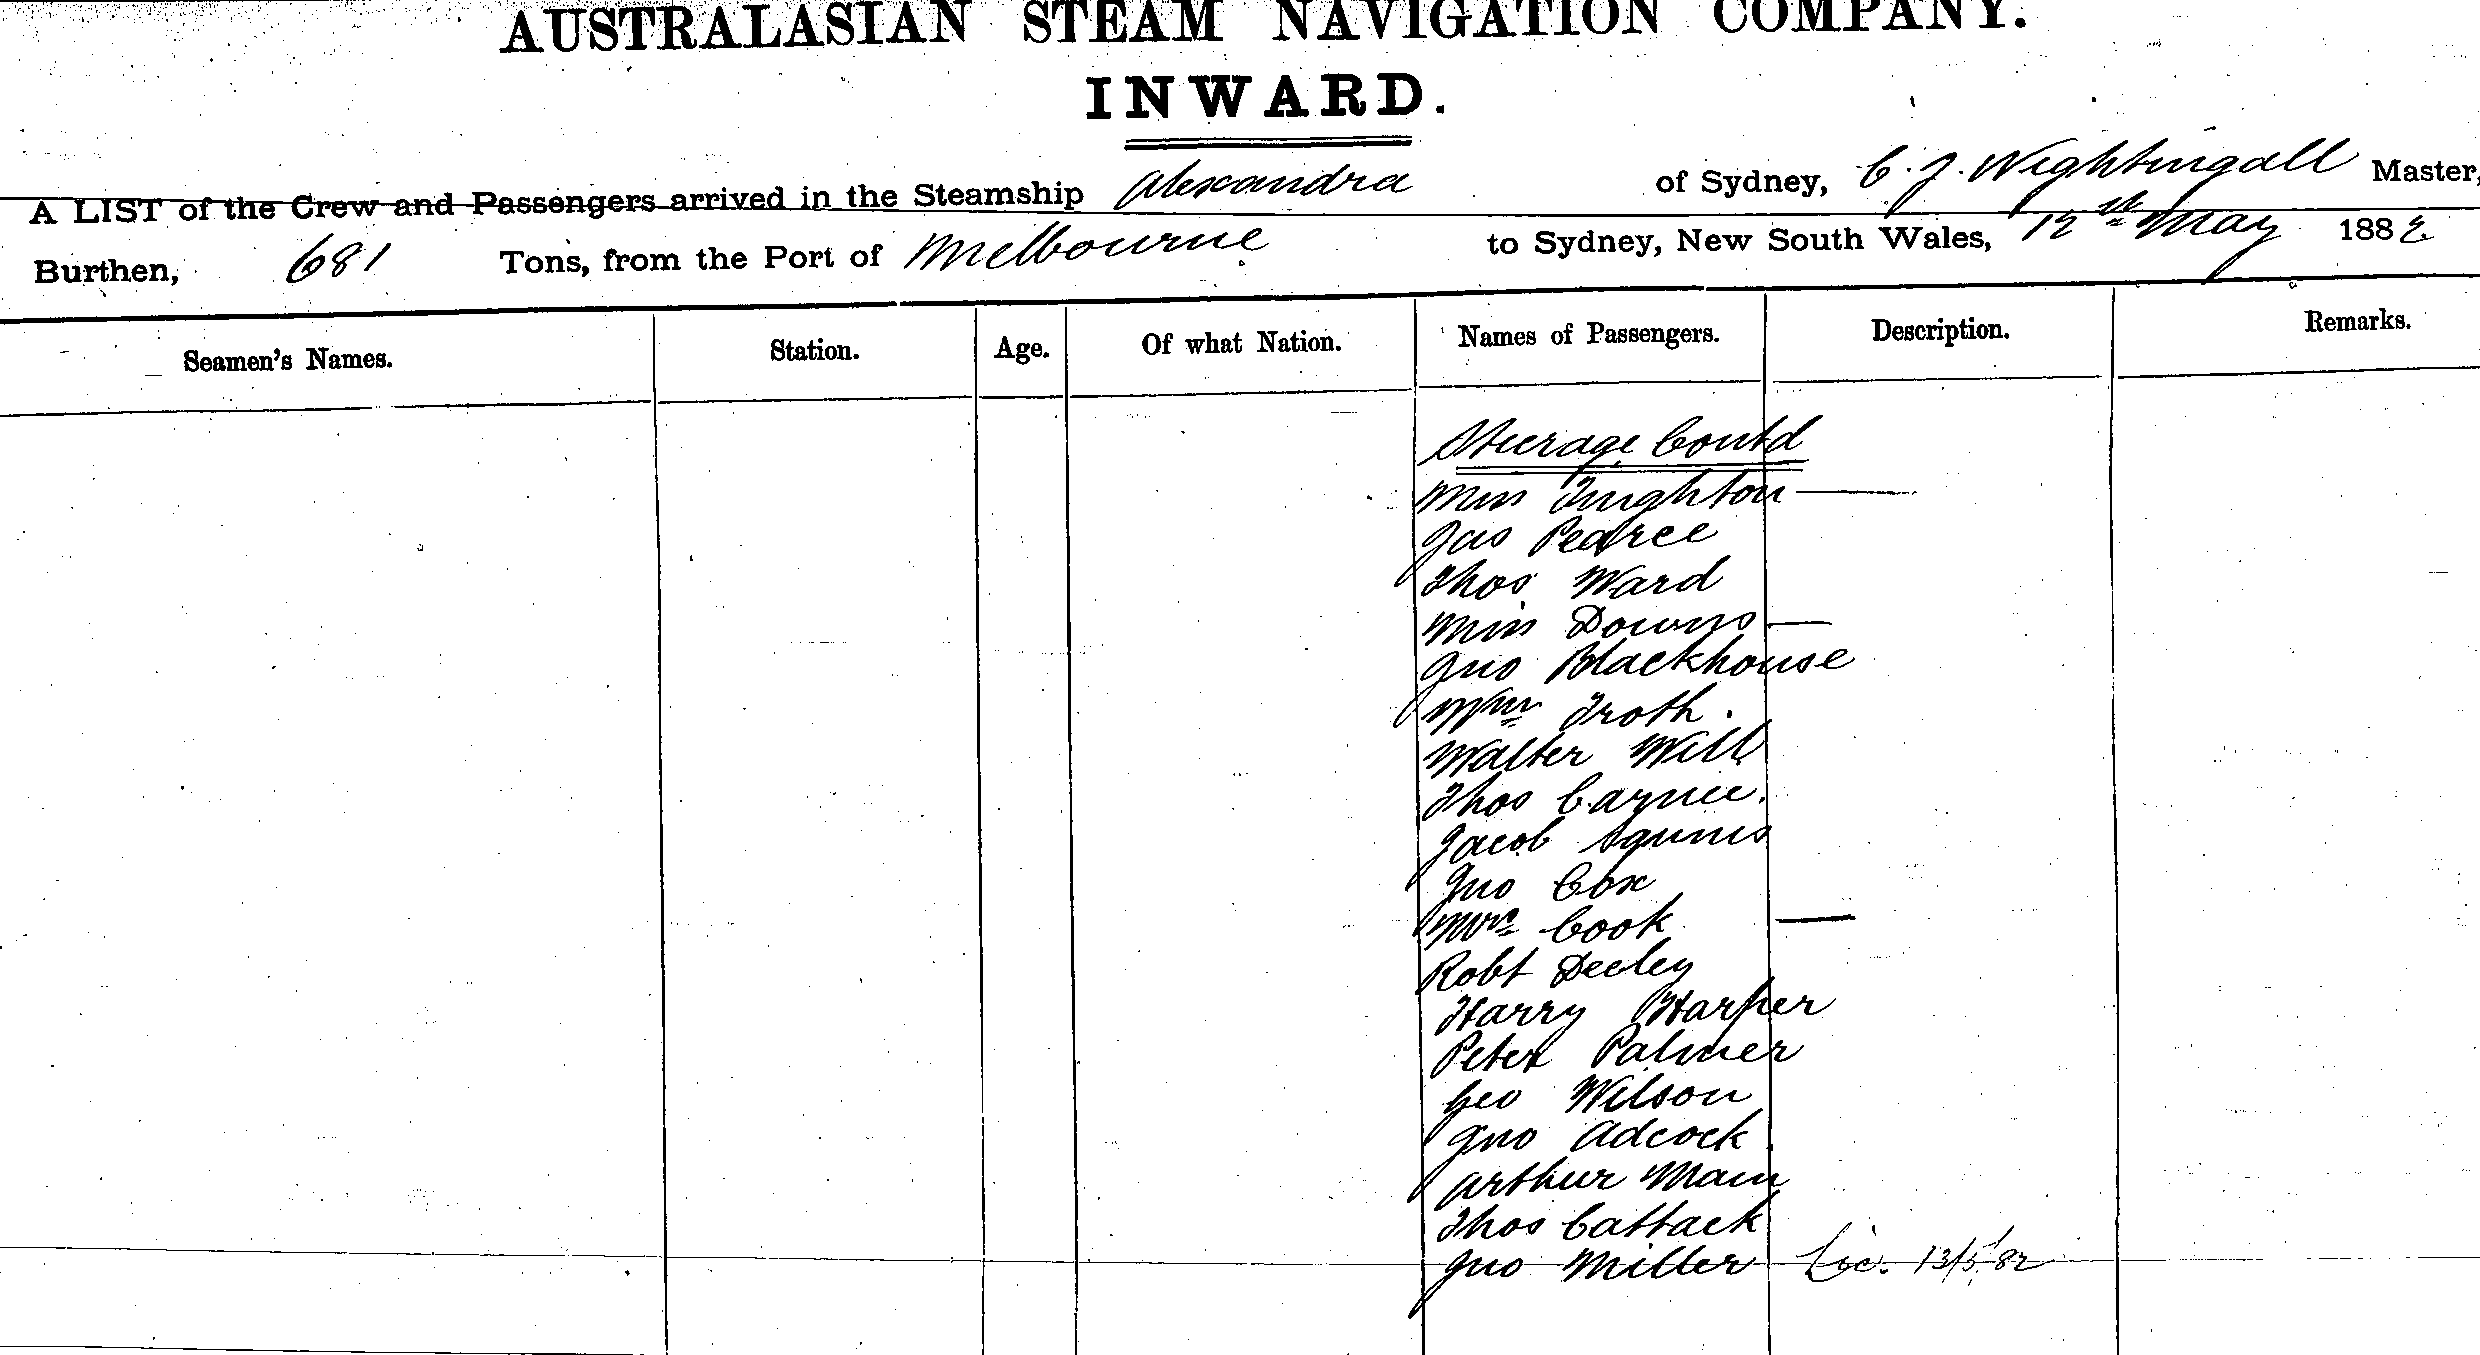 AUSTRALASIAN STEAM NAVIGATION COMPANY.
INWARD.
A LIST of the Crew and Passengers arrived in the Steamship Alexandra of Sydney, C. J. Nightingall Master,
Burthen, 681 Tons, from the Port of Melbourne to Sydney, New South Wales, 12th May 1882
Seamen's Names. Station. Age. Of what Nation. Names of Passengers. Description. Remarks.
Steerage Contd
Miss —
Jas Pearce
Thos Ward
Miss Downs —
Jno Blackhouse
Wm Troth.
Walter Will
Thos
Jacob
Jno Cox
Mrs Cook —
Robt Deeley
Harry Harper
Peter Palmer
Geo Wilson
Jno Adcock
Arthur Main
Thos Cattack
Jno Miller 13/5/82